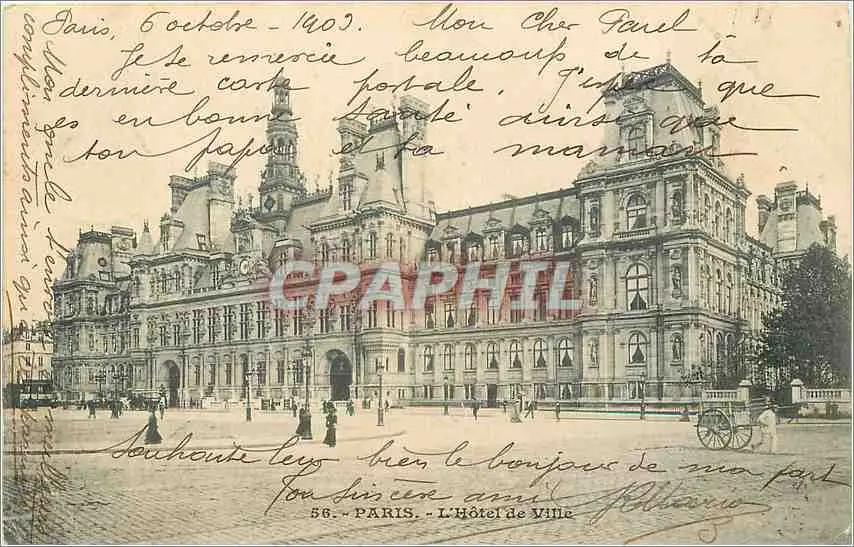 Paris, 6 octobre - 1903. Mon Cher Parel
Je te remercie beaucoup de ta
dernière carte postale. J'espère que
es en bonne santé ainsi que
ton papa et ta maman
Mon oncle t'envoie mille
compliments ainsi qu
CPAPHIL
Souhaite leur bien le bonjour de ma part
Ton sincère ami
56. - PARIS. - L'Hôtel de Ville